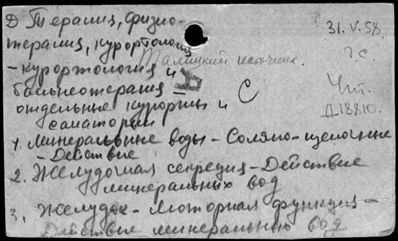 Д Терапия, физио-
терапия, курортология
- курортология и
бальнеотерапия -
отдельные курорты и
санатории
Талицкий источник.
31.V.58.
Г.С.
С
Чит.
Д18810.
1. Минеральные воды - Соляно-щелочные
- Действие
2. Желудочная секреция - Действие
минеральных вод
3. Желудок - Моторная функция -
Действие минеральных вод